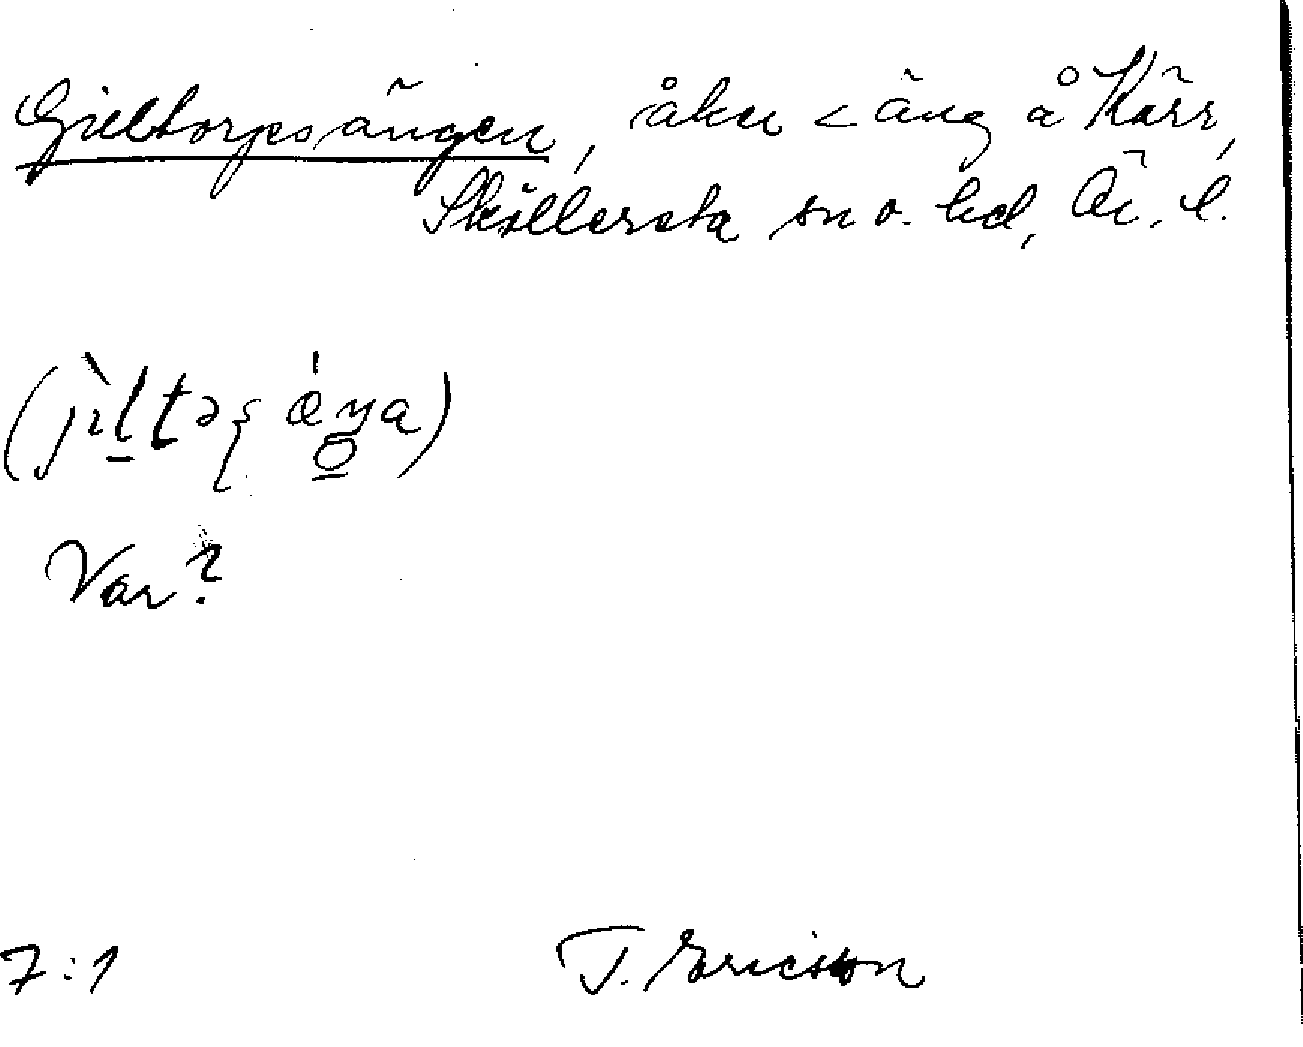 Gieltorpsängen, åker < äng å Kärr,
Sköllersta sn o. hd, Ör. l.
Var?
7:1 T. Ericsson